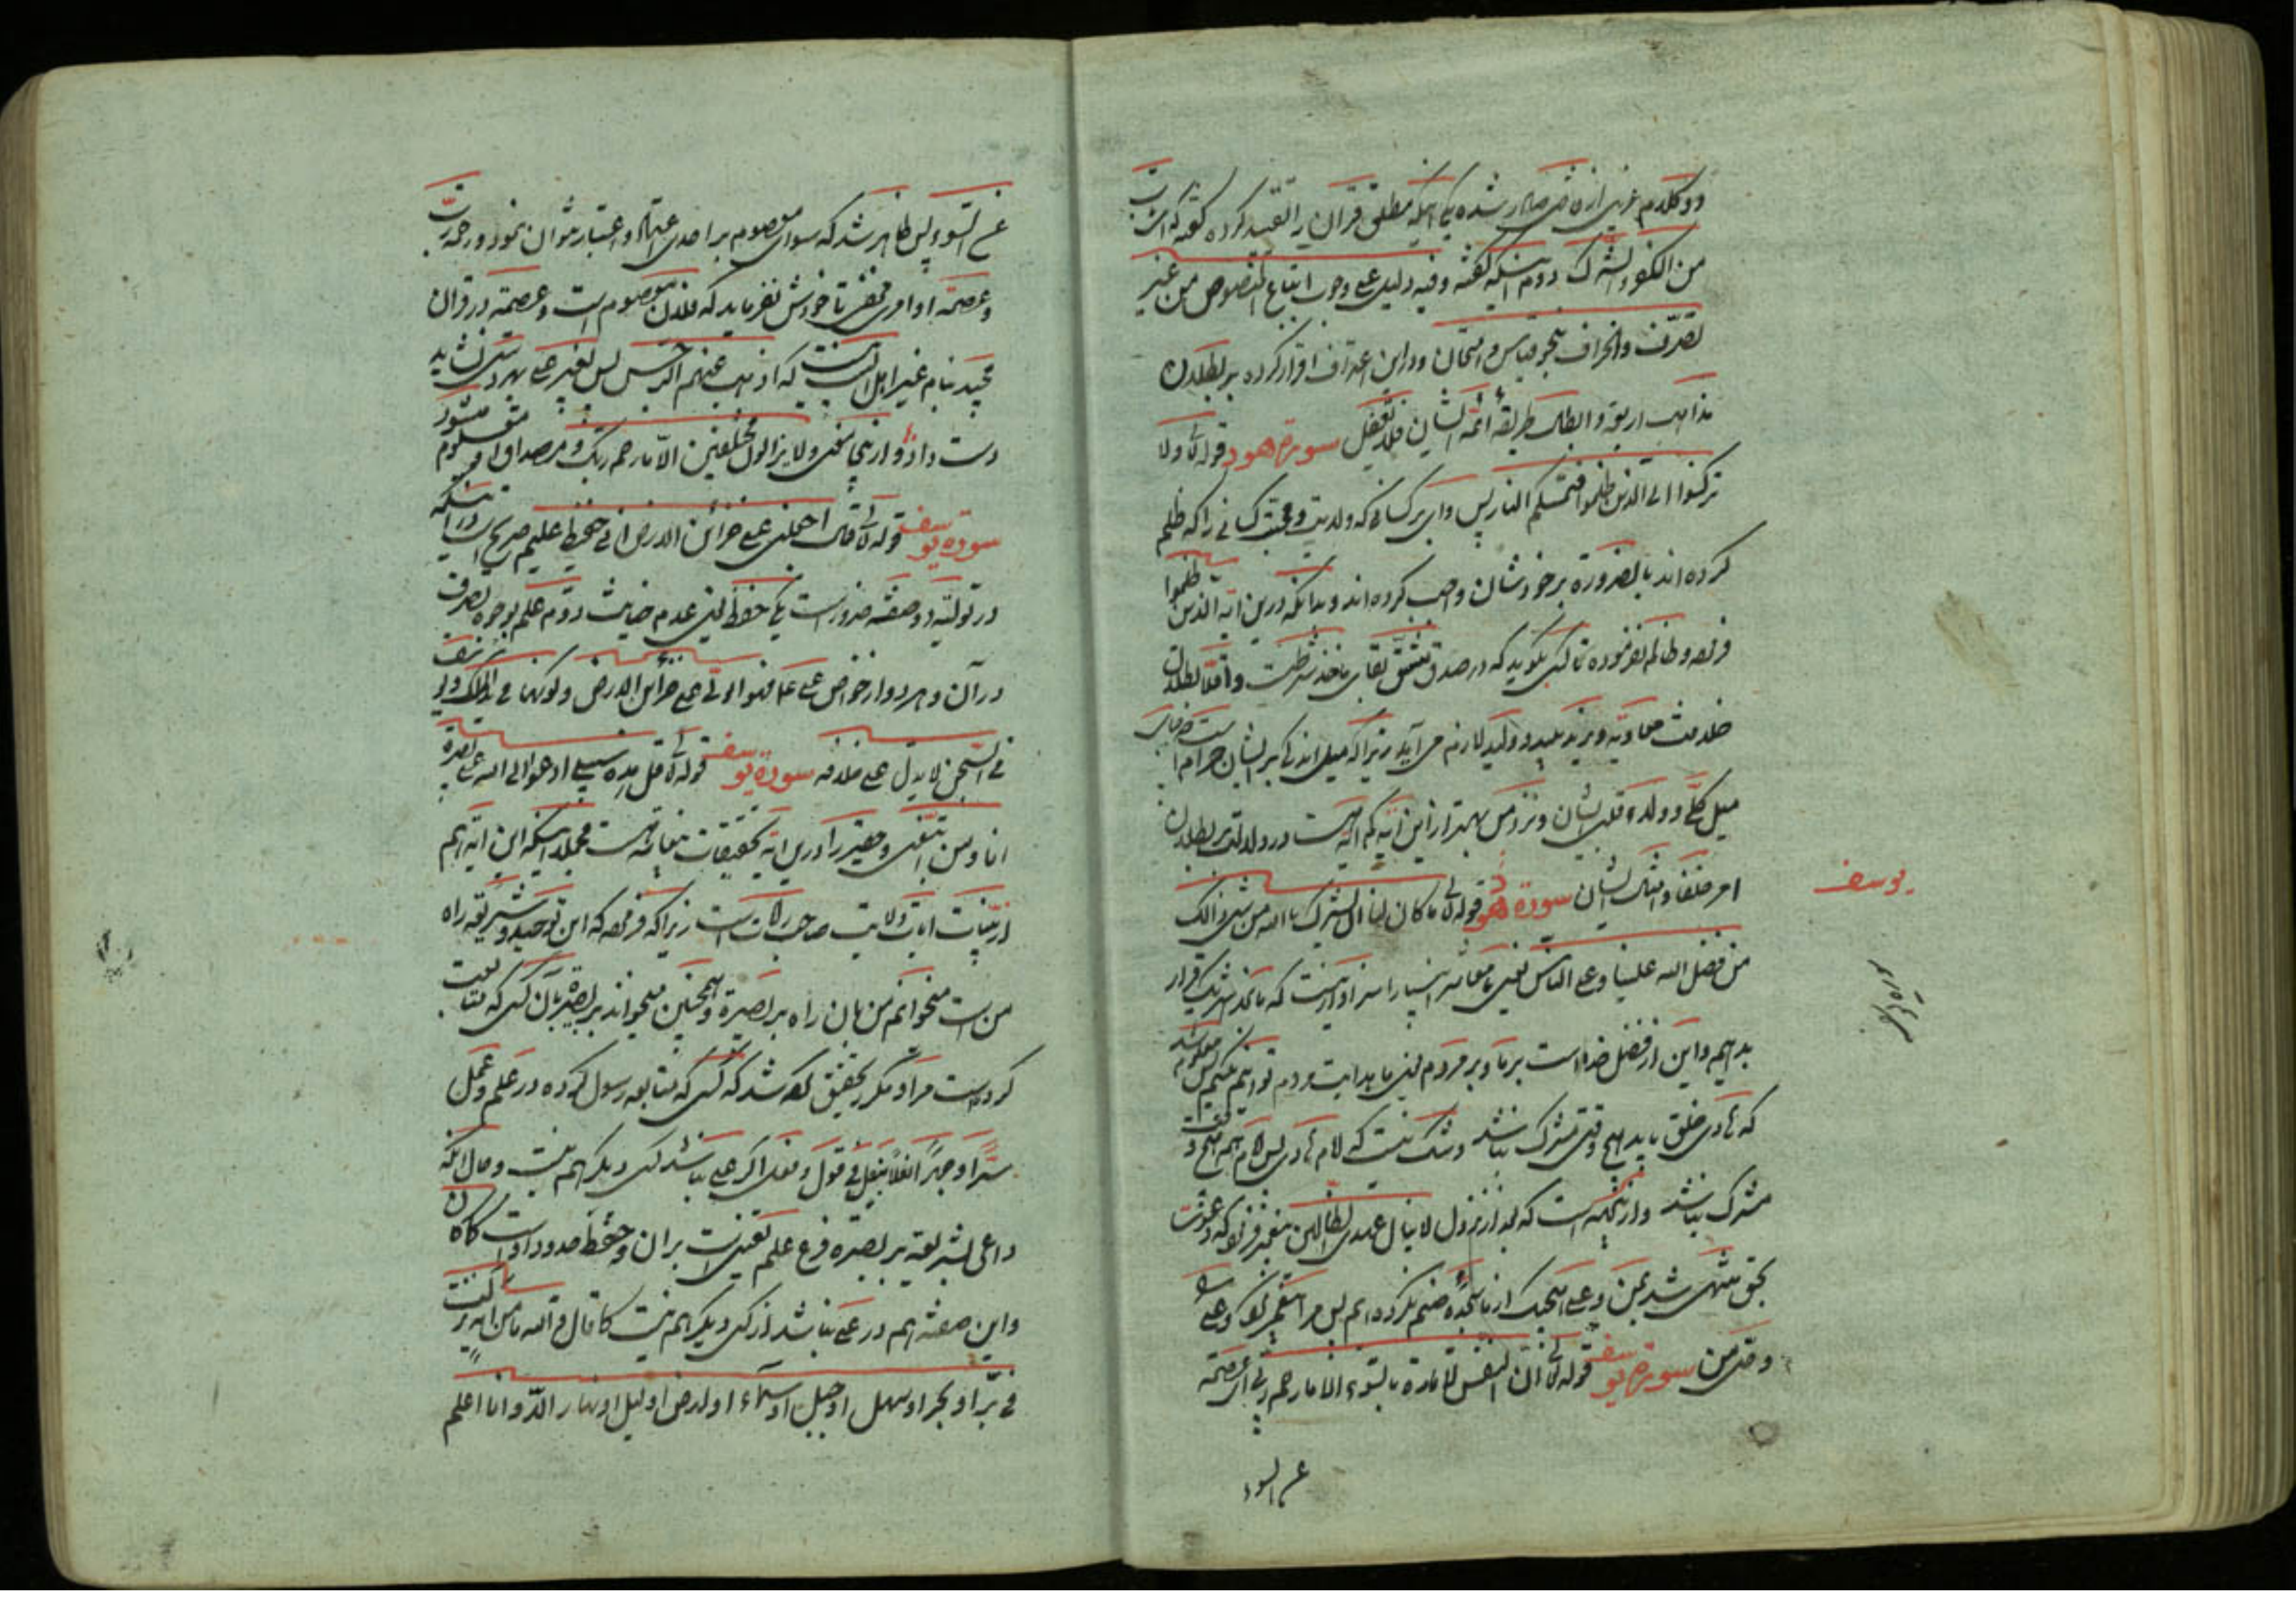 دو کلام غریب ازه صادر شده یکی آنکه مطلق قرآن را تقیید کرده گفته ای
من الکفر و الشرک دوم اینکه گفته وفیه دلیل علی وجوب اتباع النصوص من غیر
تصرف وانحراف بنحو قیاس و استحسان ودر این اعتراف اقرار کرده بر بطلان
مذاهب اربعه و ابطال طریقه ائمه ایشان فلا تغفل سورة هود قوله تع ولا
ترکنوا الی الذین ظلموا فتمسکم النار پس وای بر کسانی که ولایت و محبت کسانی را که ظلم
کرده اند بالضروره بر خودشان واجب کرده اند و بدانکه درین ایه الذین ظلموا
فرموده و ظالم نفرموده تا کسی بگوید که در صدق مشتق بقای ماخذ شرطست و اقلا بطلان
خلافت معاویه و یزید پلید و ولید لازم می آید زیرا که میل اندکی بر ایشان حرام است
میل کلی و ولاء قلب ایشان ونزد من بهتر از این آیه کم آیه ایست در دلالت بر بطلان
امر خلفا و امثال ایشان سورة یوسف قوله تع ما کان لنا ان نشرک بالله من شئ ذالک
من فضل الله علینا و علی الناس یعنی ما معاشر انبیا را سزاوار نیست که ما بخدا شریک قرار
بدهیم واین از فضل خداست بر ما و بر مردم یعنی ما هدایت مردم توانیم کنیم پس معلوم شد
که هادی خلق باید هیچ وقتی مشرک نباشد وشک نیست که امام هادی پس امام هم هیچ وقت
مشرک نباشد و ازینجهت است که بعد از نزول لا ینال عهدی الظالمین پیغمبر فرمود که دعوت
بحق منتهی شد بمن و علی اینجا که از ما سجده صنم نکرده ایم پس مرا پیغمبر نمود و علی را
وصی من سورة یوسف قوله تع ان النفس لامارة بالسوء الا ما رحم ربی ای عصمه
عن السوء
یوسف
عن السوء پس ظاهر شد که سوای معصوم بر احدی اعتماد و اعتبار نتوان نمود و رحمة رب
و عصمة او امری مخفی تا خودش نفرماید که فلان معصوم است و عصمة در قران
مجید بنام غیر اهل البیت نیست که اذهب عنهم الرجس پس بغیر علی بهر دستی نشاید
دست داد و ازینجا معنی ولا یزالون مختلفین الا ما رحم ربک و مصداق او معلوم میشود
سورة یوسف قوله تع قال اجعلنی علی خزائن الارض انی حفیظ علیم صریح است در اینکه
در تولیه دو صفة ضرور است یکی حفظ یعنی عدم خیانت دوم علم بوجوه تصرف
در آن و هر دو از خواص علی ع فهو الولی علی خزائن الارض و لو کان فی الملک ولی
فی السجن لا یدل علی خلافه سورة یوسف قوله تع قل هذه سبیلی ادعوا الی الله علی بصیرة
انا ومن اتبعنی و حقیر را درین ایه تحقیقات نفیسه هست مجملا اینکه این ایه هم
از بینات ایات ولایت صاحب ولایت است زیرا که فرموده که این توحید و شریعه راه
من است میخوانم من بان راه بر بصیرة وهمچنین میخواند بر بصیرة بان کسی که متابعت
کرده است مرا و مکرر بتحقیق ظاهر شد که کسی که متابعه رسول کرده در علم و عمل
سرا و جهرا نعلا بنعل فی قول و فعل اگر علی نباشد کسی دیگر هم نیست و حال آنکه
داعی بشریعه بر بصیرة فرع علم یقینی است بر ان و حفظ حدود او است کاه
واین صفة هم در علی نباشد از کسی دیگر هم نیست کما قال والله ما من ایه نزلت
فی بر او بحر او سهل او جبل او سماء او لارض او لیل او نهار الا و انا اعلم